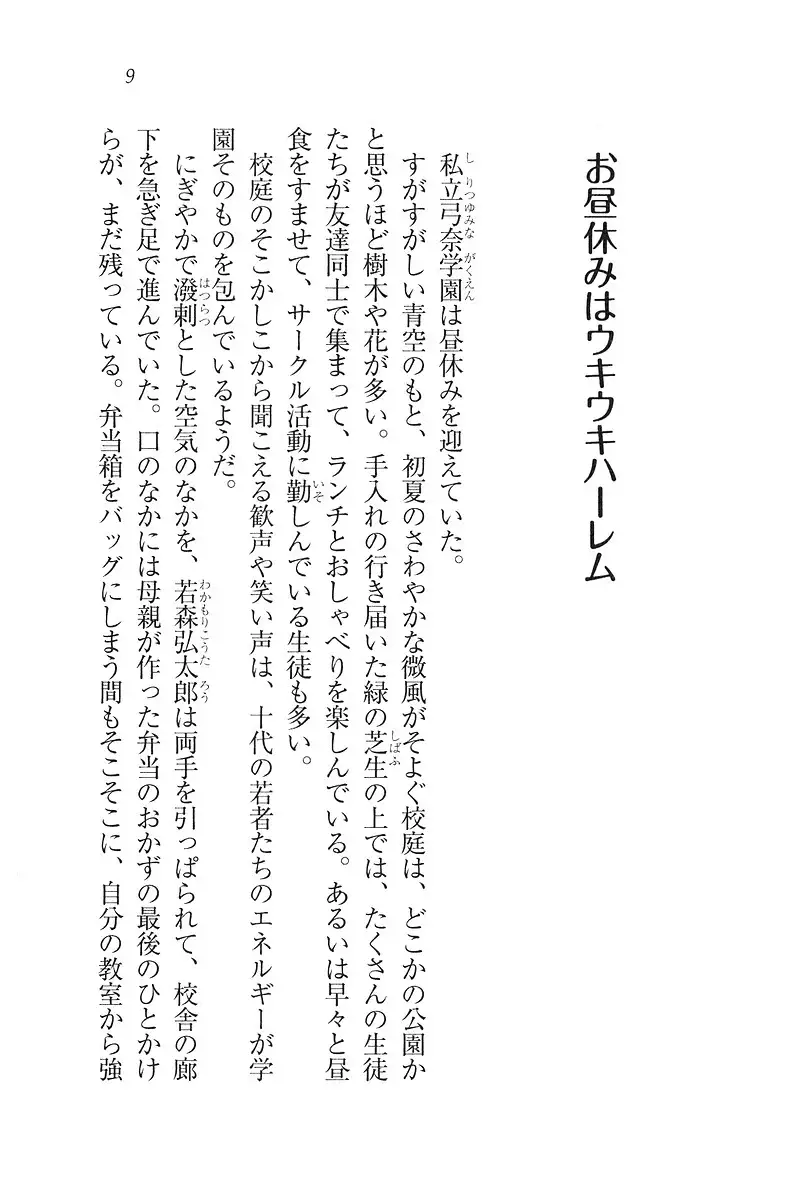 9
お昼休みはウキウキハーレム
私立弓奈学園は昼休みを迎えていた。
すがすがしい青空のもと、初夏のさわやかな微風がそよぐ校庭は、どこかの公園か
と思うほど樹木や花が多い。手入れの行き届いた緑の芝生の上では、たくさんの生徒
たちが友達同士で集まって、ランチとおしゃべりを楽しんでいる。あるいは早々と昼
食をすませて、サークル活動に勤しんでいる生徒も多い。
校庭のそこかしこから聞こえる歓声や笑い声は、十代の若者たちのエネルギーが学
園そのものを包んでいるようだ。
にぎやかで潑剌とした空気のなかを、若森弘太郎は両手を引っぱられて、校舎の廊
下を急ぎ足で進んでいた。口のなかには母親が作った弁当のおかずの最後のひとかけ
らが、まだ残っている。弁当箱をバッグにしまう間もそこそこに、自分の教室から強